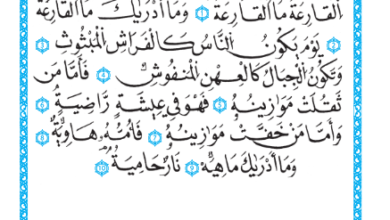 ٱلْقَارِعَةُ مَا ٱلْقَارِعَةُ ١ وَمَآ أَدْرَىٰكَ مَا ٱلْقَارِعَةُ
٢ يَوْمَ يَكُونُ ٱلنَّاسُ كَٱلْفَرَاشِ ٱلْمَبْثُوثِ ٣
وَتَكُونُ ٱلْجِبَالُ كَٱلْعِهْنِ ٱلْمَنفُوشِ ٤ فَأَمَّا مَن
ثَقُلَتْ مَوَٰزِينُهُۥ ٥ فَهُوَ فِى عِيشَةٍ رَّاضِيَةٍ ٦
وَأَمَّا مَنْ خَفَّتْ مَوَٰزِينُهُۥ ٧ فَأُمُّهُۥ هَاوِيَةٌ ٨
وَمَآ أَدْرَىٰكَ مَا هِيَهْ ٩ نَارٌ حَامِيَةٌۢ ١٠